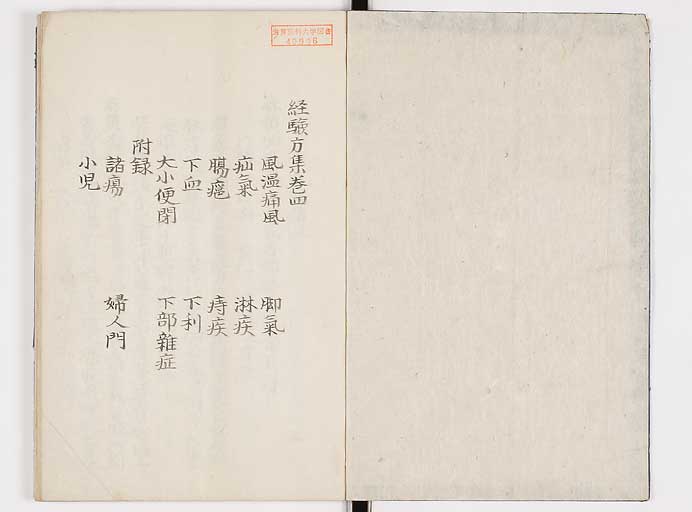 経験方集巻四
風湿痛風 脚氣
疝氣 淋疾
腸癰 痔疾
下血 下利
大小便閉 下部雜症
附録
諸瘍 婦人門
小児